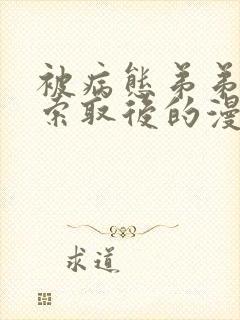 被病態弟弟
索取後的漫
求道